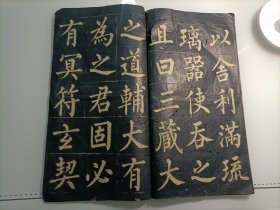 以舍利滿琉
璃器使吞之
且曰三藏大
之道輔大有
為之君固必
有冥符玄契